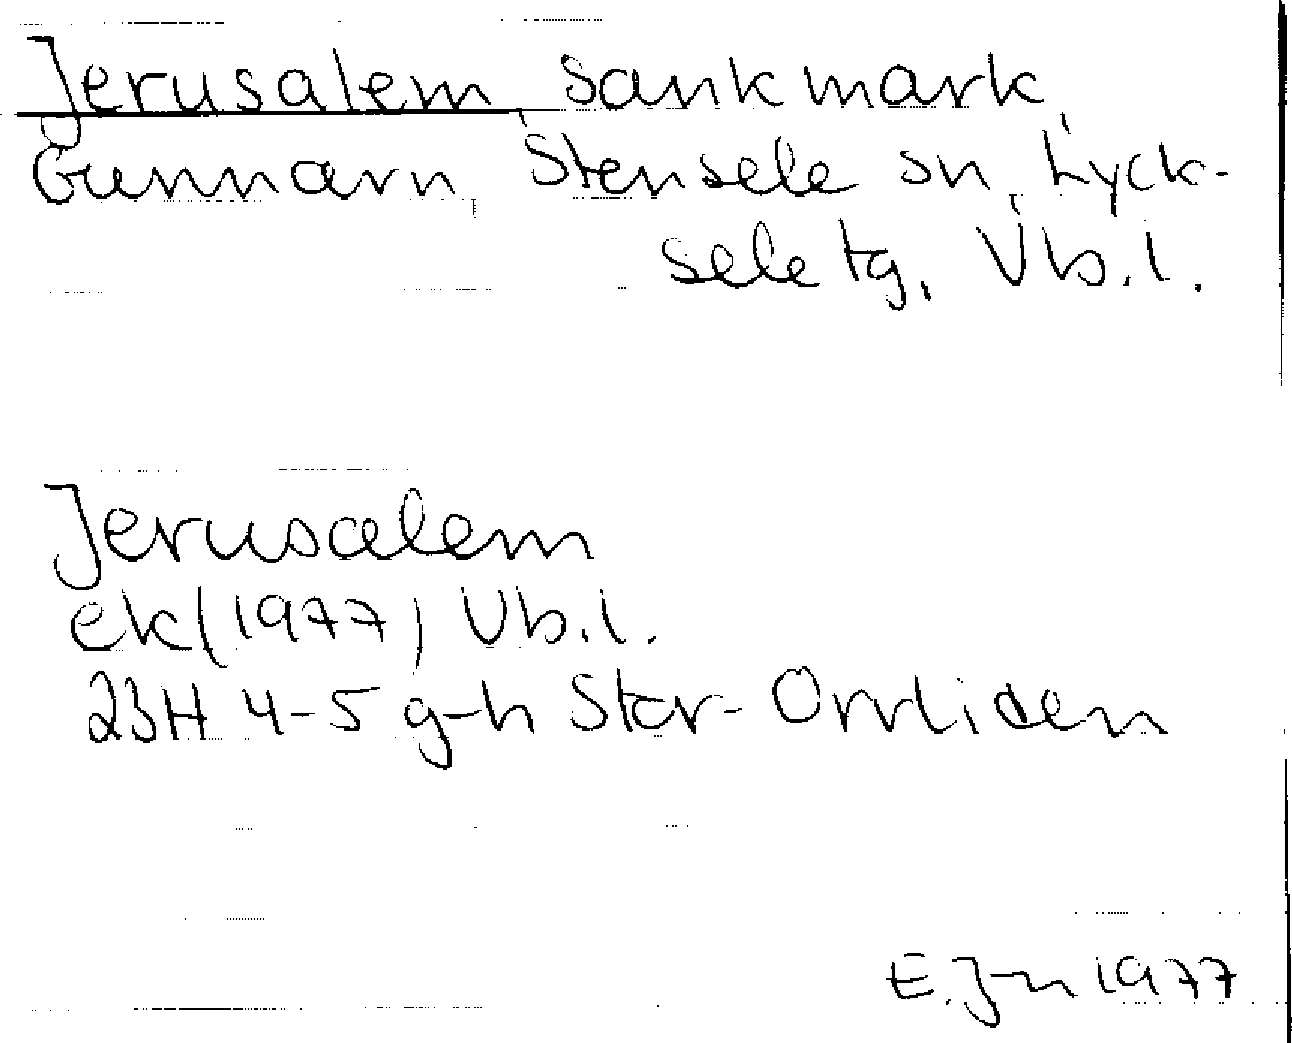 Jerusalem, Sankmark,
Gunnarn, Stensele sn, Lyck-
sele tg, Vb.l.
Jerusalem
ek(1977) Vb.l.
23H 4-5 g-h Stor-Orrliden
E.J-n 1977